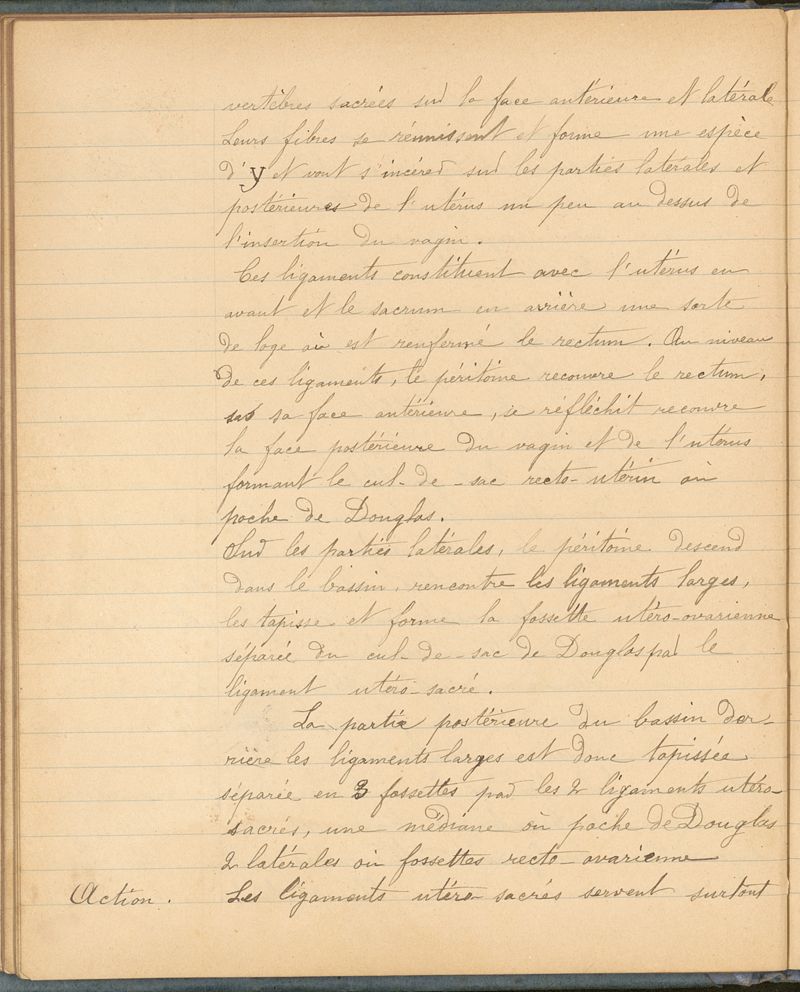 vertèbres sacrées sur la face antérieure et latérale
Leurs fibres se réunissent et forme une espèce
d'y et vont s'incérer sur les parties latérales et
postérieures de l'utérus un peu au dessus de
l'insertion du vagin.
Ces ligaments constituent avec l'utérus en
avant et le sacrum en arrière une sorte
de loge où est renfermé le rectum. Au niveau
de ces ligaments, le péritoine recouvre le rectum,
sur sa face antérieure, se réfléchit recouvre
la face postérieure du vagin et de l'utérus
formant le cul-de-sac recto-utérin ou
poche de Douglas.
Sur les parties latérales, le péritoine descend
dans le bassin, rencontre les ligaments larges,
les tapisse et forme la fossette utéro-ovarienne
séparée du cul-de-sac de Douglas par le
ligament utéro-sacré.
La partie postérieure du bassin der-
rière les ligaments larges est donc tapissée
séparée en 3 fossettes par les 2 ligaments utéro-
sacrés, une médiane ou poche de Douglas
2 latérales ou fossettes recto-ovarienne
Action. Les ligaments utéro-sacrés servent surtout